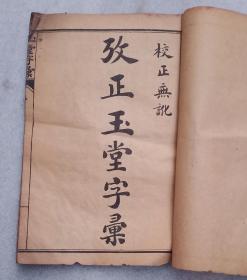 校正無訛
攷正玉堂字彙